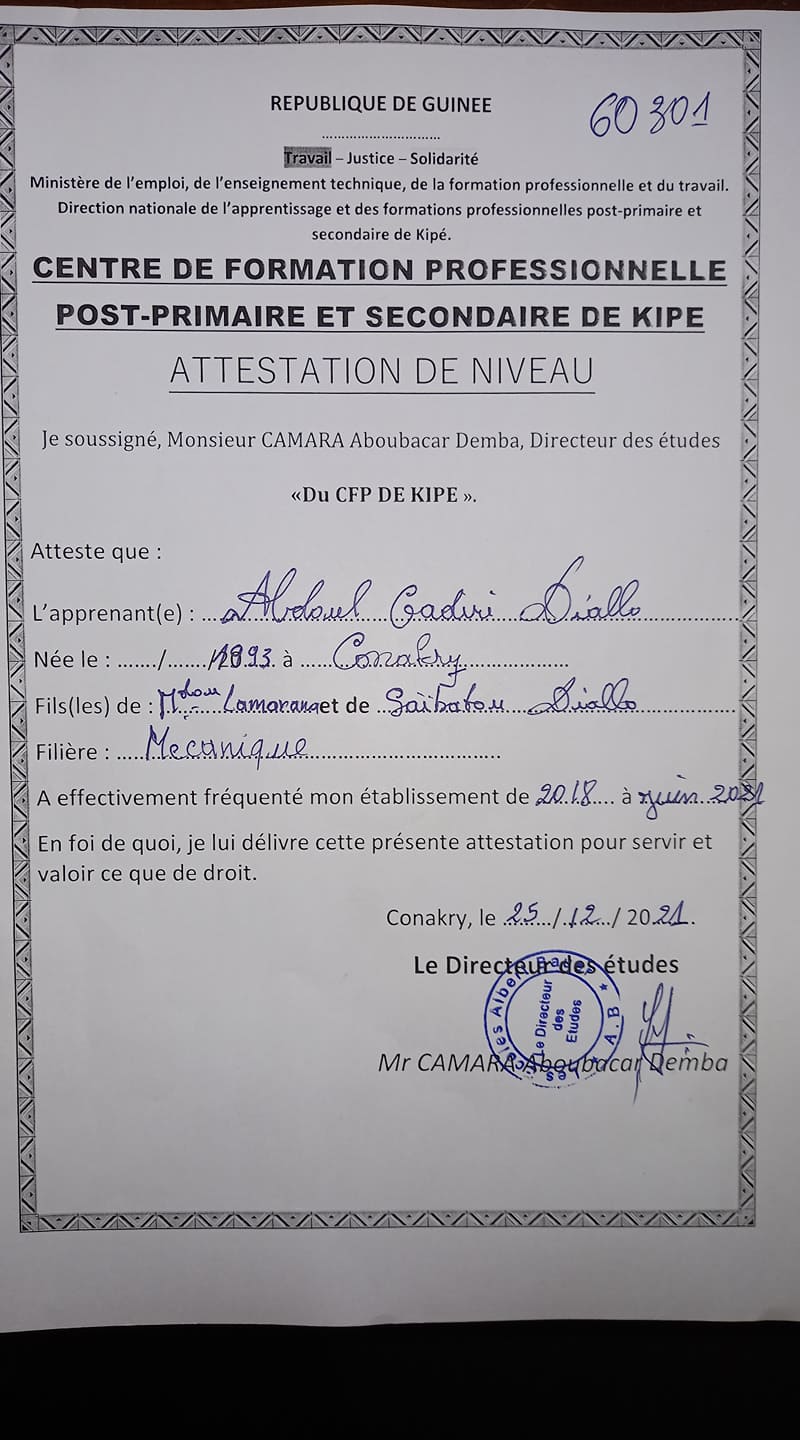 REPUBLIQUE DE GUINEE
60301
..............................
Travail – Justice – Solidarité
Ministère de l'emploi, de l'enseignement technique, de la formation professionnelle et du travail.
Direction nationale de l'apprentissage et des formations professionnelles post-primaire et
secondaire de Kipé.
CENTRE DE FORMATION PROFESSIONNELLE
POST-PRIMAIRE ET SECONDAIRE DE KIPE
ATTESTATION DE NIVEAU
Je soussigné, Monsieur CAMARA Aboubacar Demba, Directeur des études
«Du CFP DE KIPE ».
Atteste que :
L'apprenant(e) : Abdoul Gadiri Diallo
Née le : ......./......./1993. à Conakry
Fils(les) de : Mdou Lamarana et de Saïbatou Diallo
Filière : Mecanique
A effectivement fréquenté mon établissement de 2018 à juin 2021
En foi de quoi, je lui délivre cette présente attestation pour servir et
valoir ce que de droit.
Conakry, le 25/12/2021.
Le Directeur des études
Le Directeur
des
Etudes
A.B
Mr CAMARA Aboubacar Demba